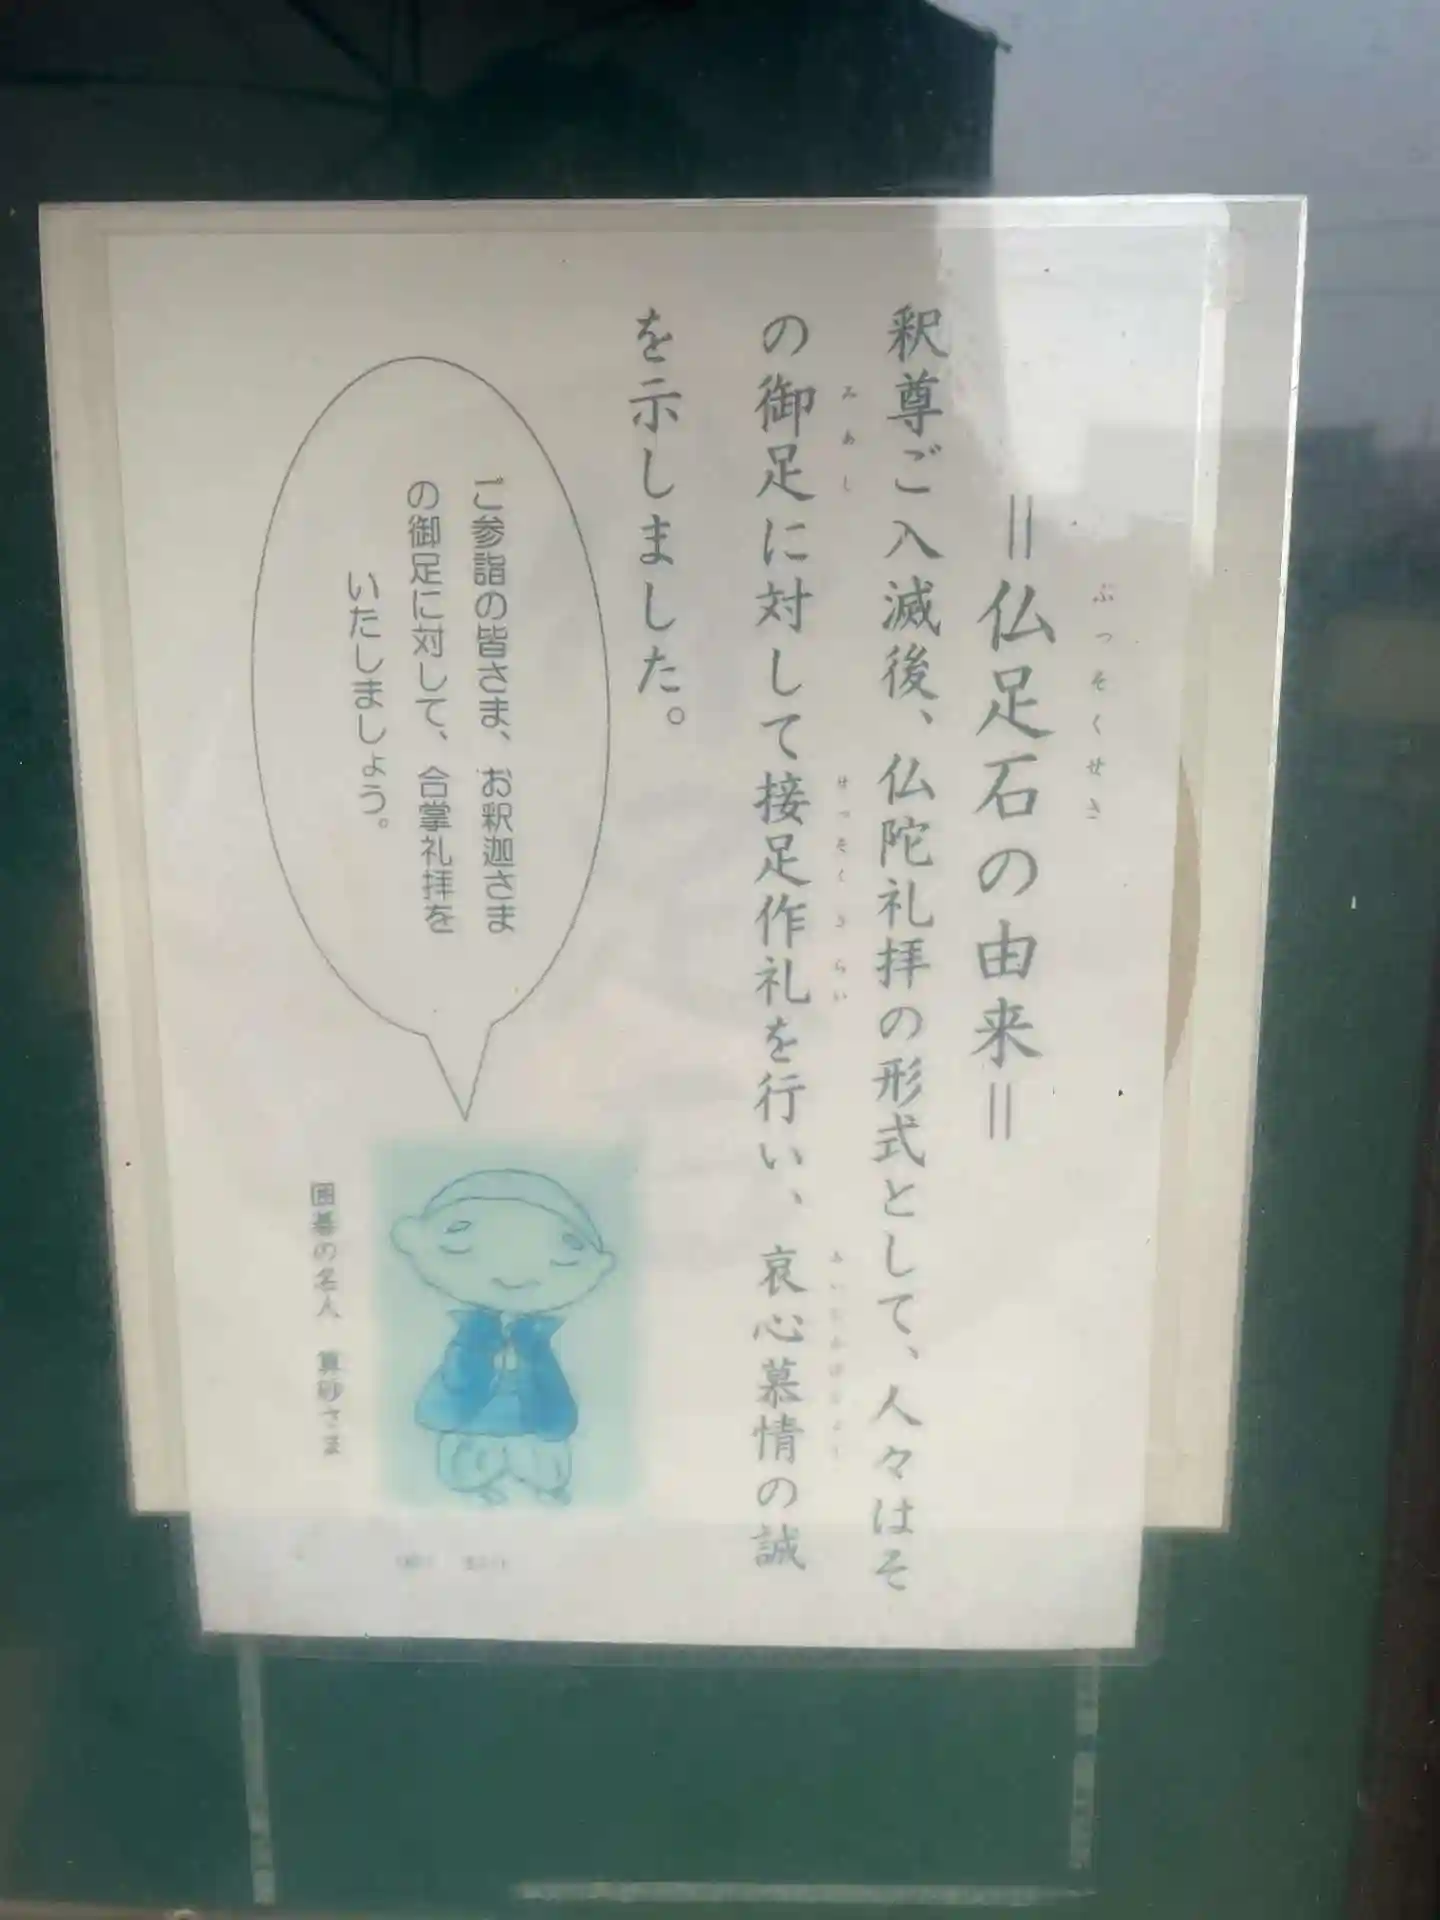 =仏足石の由来=
ぶっそくせき
釈尊ご入滅後、仏陀礼拝の形式として、人々はそ
の御足に対して接足作礼を行い、哀心慕情の誠
みあし
せっそくさらい
を示しました。
ご参詣の皆さま、お釈迦さま
の御足に対して、合掌礼拝を
いたしましょう。
囲碁の名人 算砂さま